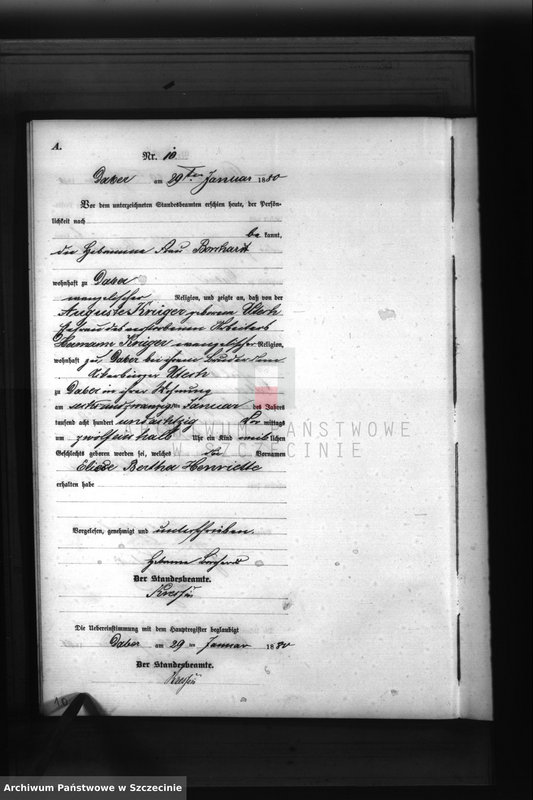 A.
Nr. 10
Daber am 29ten Januar 1880
Vor dem unterzeichneten Standesbeamten erschien heute, der Persön-
lichkeit nach
be kannt,
die Hebamme Frau
wohnhaft zu Daber
evangelischer Religion, und zeigte an, daß von der
Auguste Krüger geborene Utech
Ehefrau des verstorbenen Arbeiters
Hermann Krüger evangelischer Religion,
wohnhaft zu Daber bei ihrem Bruder dem
Ackerbürger Utech
zu Daber in ihrer Wohnung
am Januar des Jahres
tausend acht hundert und achtzig Vor mittags
um zwölf einhalb Uhr ein Kind weib lichen
Geschlechts geboren worden sei, welches die Vornamen
Bertha Henriette
erhalten habe
Vorgelesen, genehmigt und unterschrieben.
Hebamme
Der Standesbeamte.
Die Uebereinstimmung mit dem Hauptregister beglaubigt
Daber am 29 ten Januar 1880
Der Standesbeamte.
10
ARCHIWUM PAŃSTWOWE
W SZCZECINIE
Archiwum Państwowe w Szczecinie